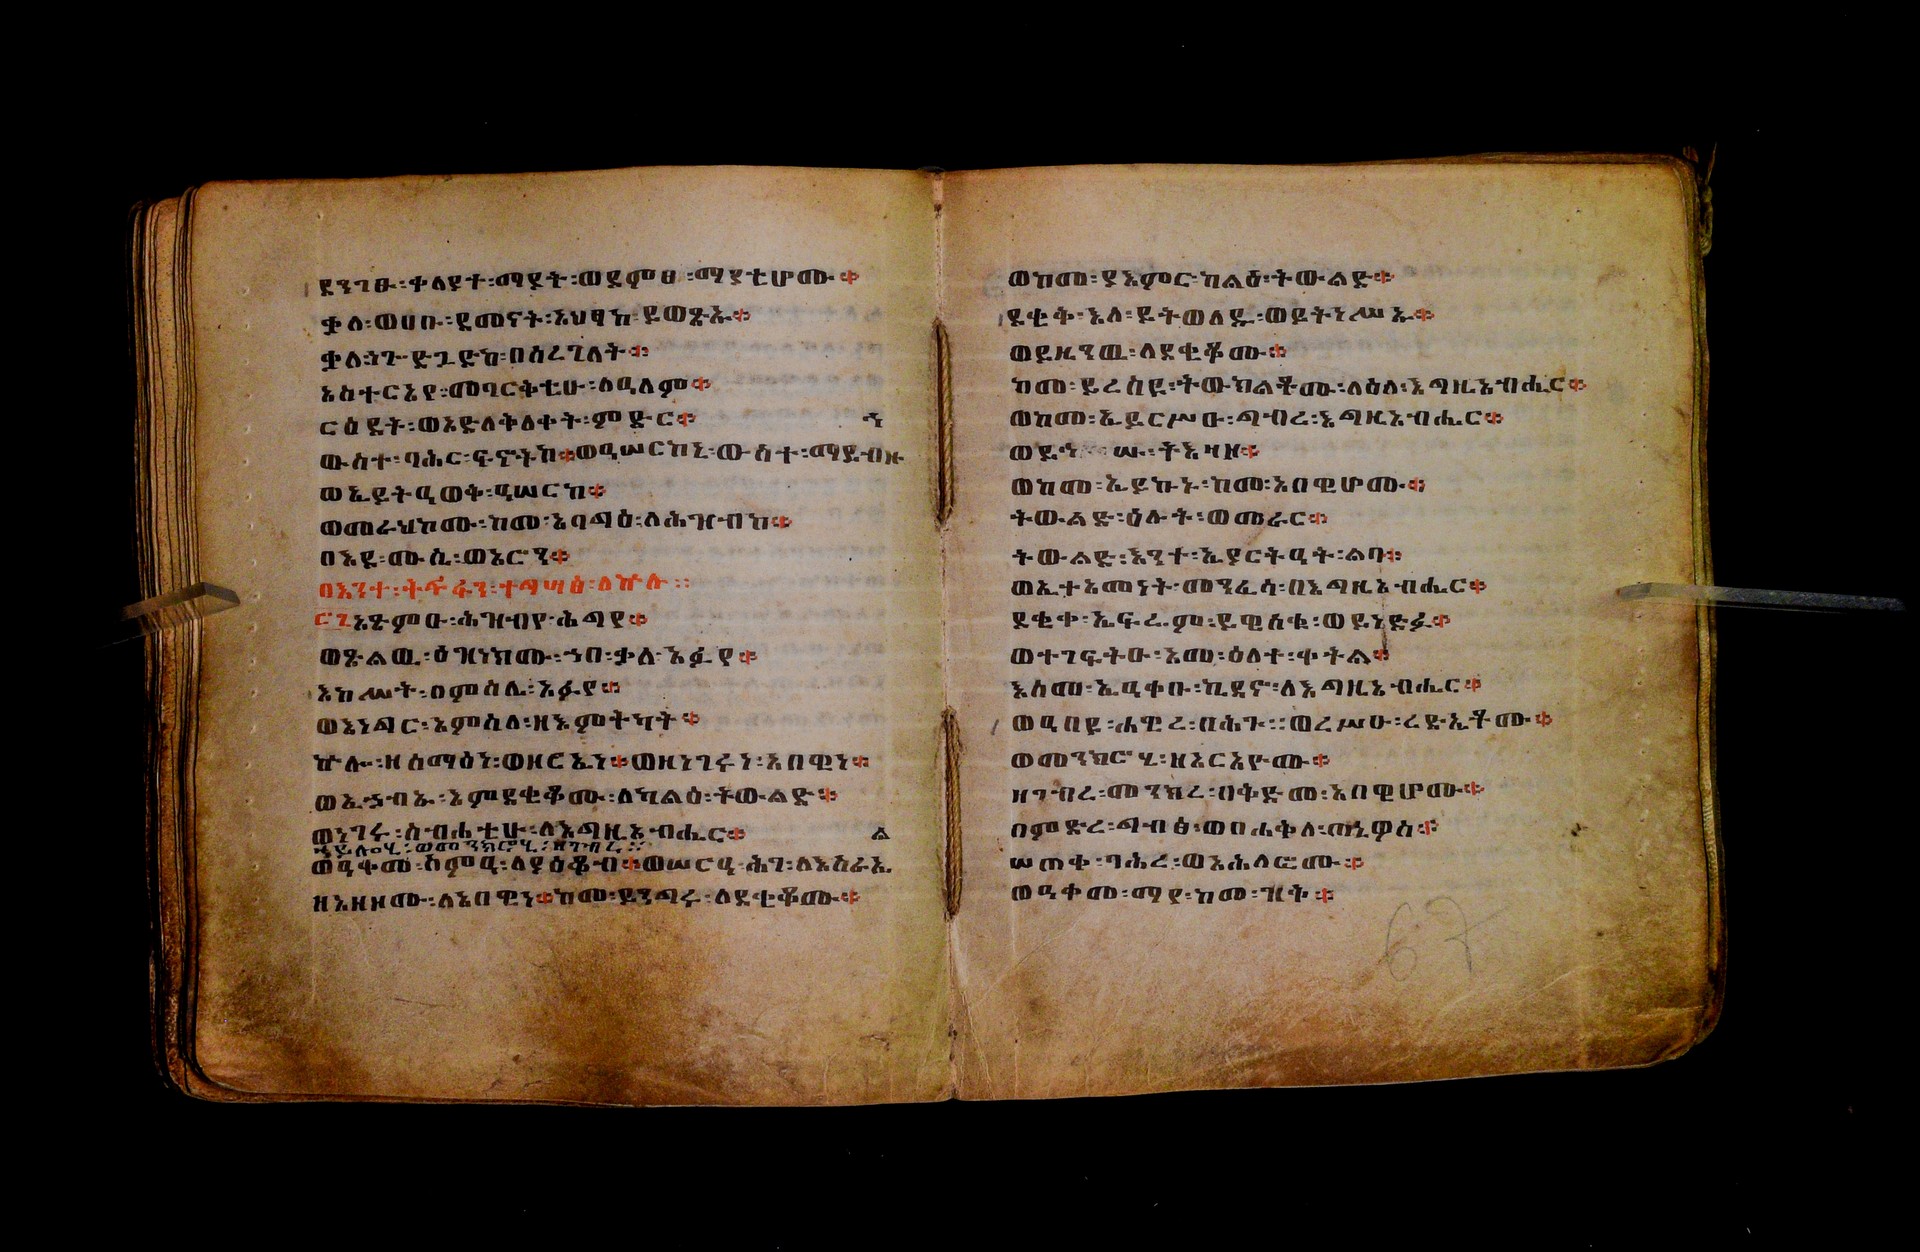 ደንገፁ፡ቀላየተ፡ማያት፡ወደምፀ፡ማያቲሆሙ።
ቃለ፡ወሀቡ፡ደመናት፡አህፃከ፡ይወፅኡ።
ቃለ፡ነጐድጓድከ፡በሰረገላት።
አስተርአየ፡መባርቅቲሁ፡ለዓለም።
ርዕደት፡ወአድለቅለቀት፡ምድር።
ኅ
ውስተ፡ባሕር፡ፍኖትከ።ወዓሠርከኒ፡ውስተ፡ማይ፡ብዙ
ወኢይትዓወቅ፡ዓሠርከ።
ወመራህከሙ፡ከመ፡አባግዕ፡ለሕዝብከ።
በእደ፡ሙሴ፡ወአሮን።
በእንተ፡ተግሣፅ፡ለኵሉ።
አፅምኡ፡ሕዝብየ፡ሕግየ።
ወፅልዉ፡ዕዝነክሙ፡ኀበ፡ቃለ፡አፉየ።
እከሥት፡በምስሌ፡አፉየ።
ወእነግር፡አምሳለ፡ዘእምትካት።
ኵሎ፡ዘሰማዕነ፡ወዘርኢነ።ወዘነገሩነ፡አበዊነ።
ወኢኀብኡ፡እምደቂቆሙ፡ለካልዕ፡ትውልድ።
ወነገሩ፡ስብሐቲሁ፡ለእግዚአብሔር።
ኀይሎሂ፡ወመንክሮሂ፡ዘገብረ።
ል
ወዓቀመ፡ስምዓ፡ለያዕቆብ።ወሠርዓ፡ሕገ፡ለእስራኤ
ዘአዘዞሙ፡ለአበዊነ።ከመ፡ይንግሩ፡ለደቂቆሙ።
ወከመ፡ያእምር፡ካልዕ፡ትውልድ።
ደቂቅ፡እለ፡ይትወለዱ፡ወይትነሥኡ።
ወይዜንዉ፡ለደቂቆሙ።
ከመ፡ይረስዩ፡ትውክልቶሙ፡ላዕለ፡እግዚአብሔር።
ወከመ፡ኢይርሥዑ፡ግብረ፡እግዚአብሔር።
ትእዛዘ።
ወከመ፡ኢይኩኑ፡ከመ፡አበዊሆሙ።
ትውልድ፡ዕሉት፡ወመራር።
ትውልድ፡እንተ፡ኢያርትዓት፡ልባ።
ወኢተአመነት፡መንፈሳ፡በእግዚአብሔር።
ደቂቀ፡ኤፍሬም፡ይዌስቁ፡ወይነድፉ።
ወተገፍትዑ፡አመ፡ዕለተ፡ቀትል።
እስመ፡ኢዓቀቡ፡ኪዳኖ፡ለእግዚአብሔር።
ወዓበዩ፡ሐዊረ፡በሕጉ።ወረሥዑ፡ረድኤቶሙ።
ወመንክሮሂ፡ዘአርአዮሙ።
ዘገብረ፡መንክረ፡በቅድመ፡አበዊሆሙ።
በምድረ፡ግብፅ፡ወበሐቅለ፡ጠኔዎስ።
ሠጠቀ፡ባሕረ፡ወአሕለፎሙ።
ወዓቀመ፡ማየ፡ከመ፡ዝቅ።
67